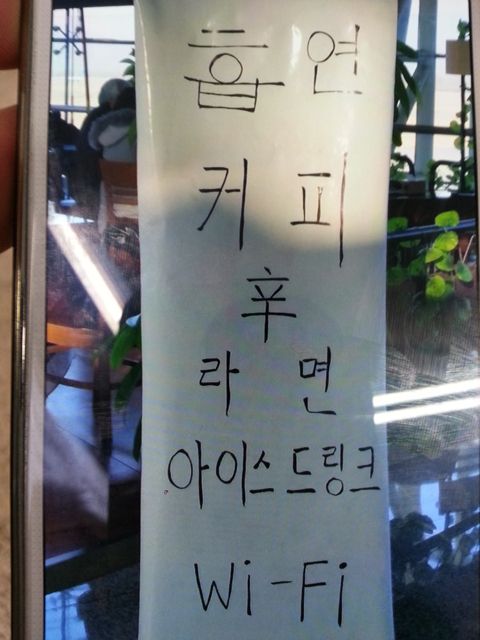 흡연
커피
辛
라면
아이스드링크
Wi-Fi